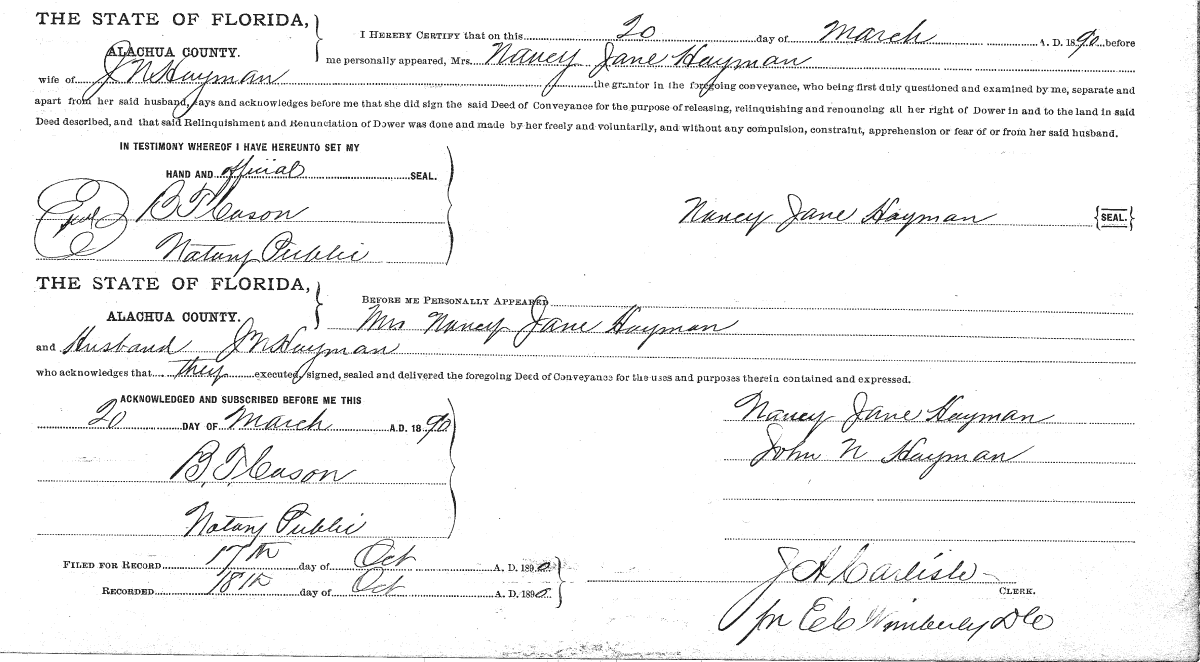 THE STATE OF FLORIDA,
ALACHUA COUNTY.
I HEREBY CERTIFY that on this 20 day of March A. D. 1890 before
me personally appeared, Mrs. Nancy Jane Hayman
wife of J N Hayman the grantor in the foregoing conveyance, who being first duly questioned and examined by me, separate and
apart from her said husband, says and acknowledges before me that she did sign the said Deed of Conveyance for the purpose of releasing, relinquishing and renouncing all her right of Dower in and to the land in said
Deed described, and that said Relinquishment and Renunciation of Dower was done and made by her freely and voluntarily, and without any compulsion, constraint, apprehension or fear of or from her said husband.
IN TESTIMONY WHEREOF I HAVE HEREUNTO SET MY
HAND AND official SEAL.
Seal B. F. Cason
Nancy Jane Hayman {SEAL.}
Notary Public
THE STATE OF FLORIDA,
ALACHUA COUNTY.
BEFORE ME PERSONALLY APPEARED
Mrs Nancy Jane Hayman
and Husband J N Hayman
who acknowledges that they executed, signed, sealed and delivered the foregoing Deed of Conveyance for the uses and purposes therein contained and expressed.
ACKNOWLEDGED AND SUBSCRIBED BEFORE ME THIS
20 DAY OF March A.D. 1890
Nancy Jane Hayman
John N Hayman
B. F. Cason
Notary Public
FILED FOR RECORD 17th day of Oct A. D. 1890
RECORDED 18th day of Oct A. D. 1890
J A Carlisle
CLERK.
pr Wimberly DC